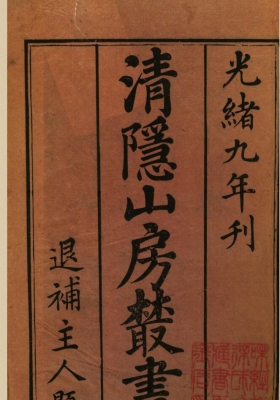 光緒九年刊
清隱山房叢書
退補主人題